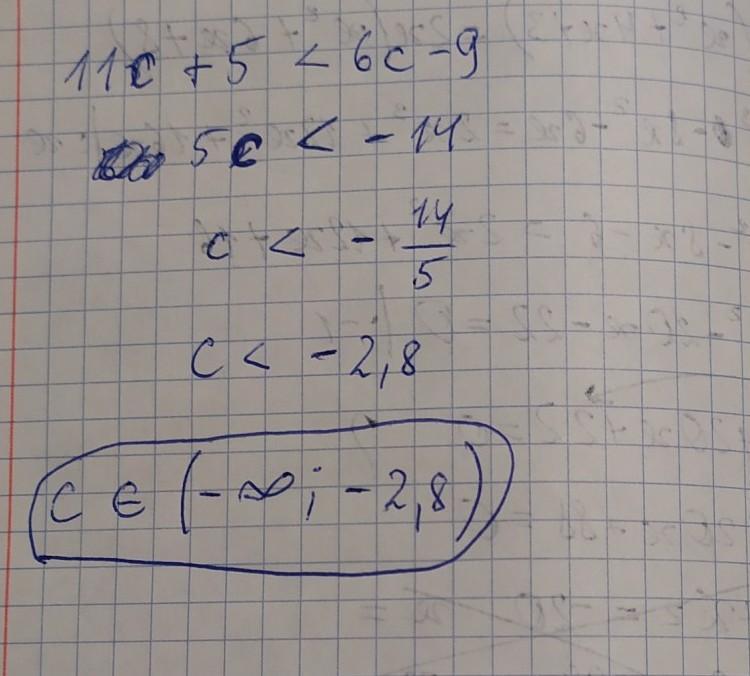 11c + 5 < 6c - 9
5c < - 14
c < - 14/5
c < - 2,8
c ∈ (-∞; -2,8)